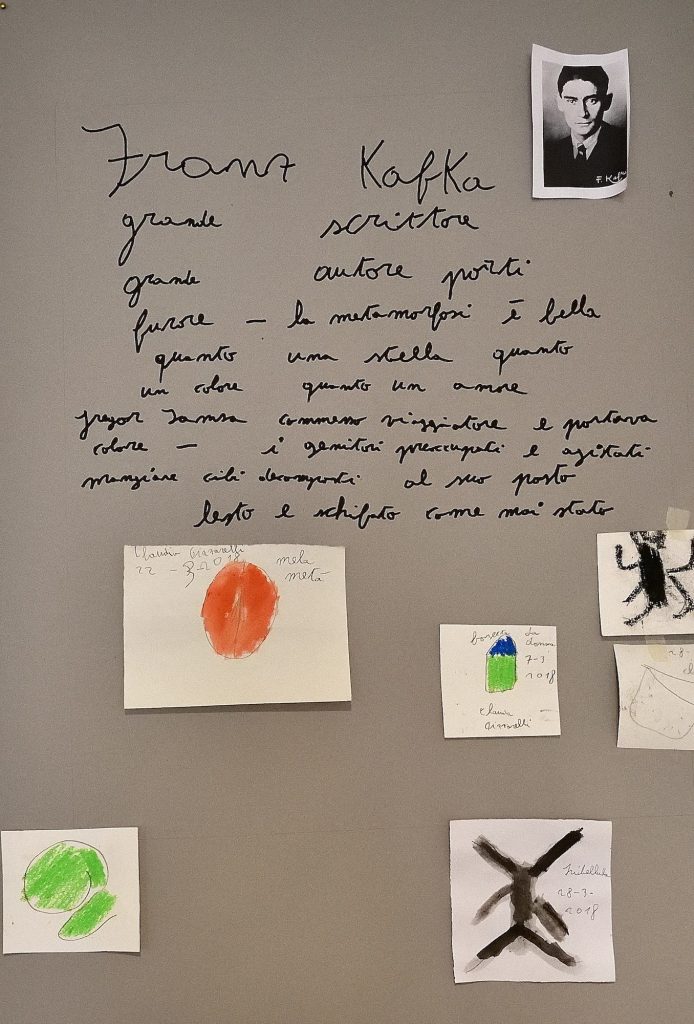 Franz Kafka
F. Kafka
grande scrittore
grande autore porti
furore – la metamorfosi è bella
quanto una stella quanto
un colore quanto un amore
gregor Samsa commesso viaggiatore e portava
colore – i genitori preoccupati e agitati
mangiare cibi decomposti al suo posto
lesto e schifato come mai stato
22 - 3 - 2018
mela
metà
borsetta da
donna
7-3
2018
28-
28-3-
2018